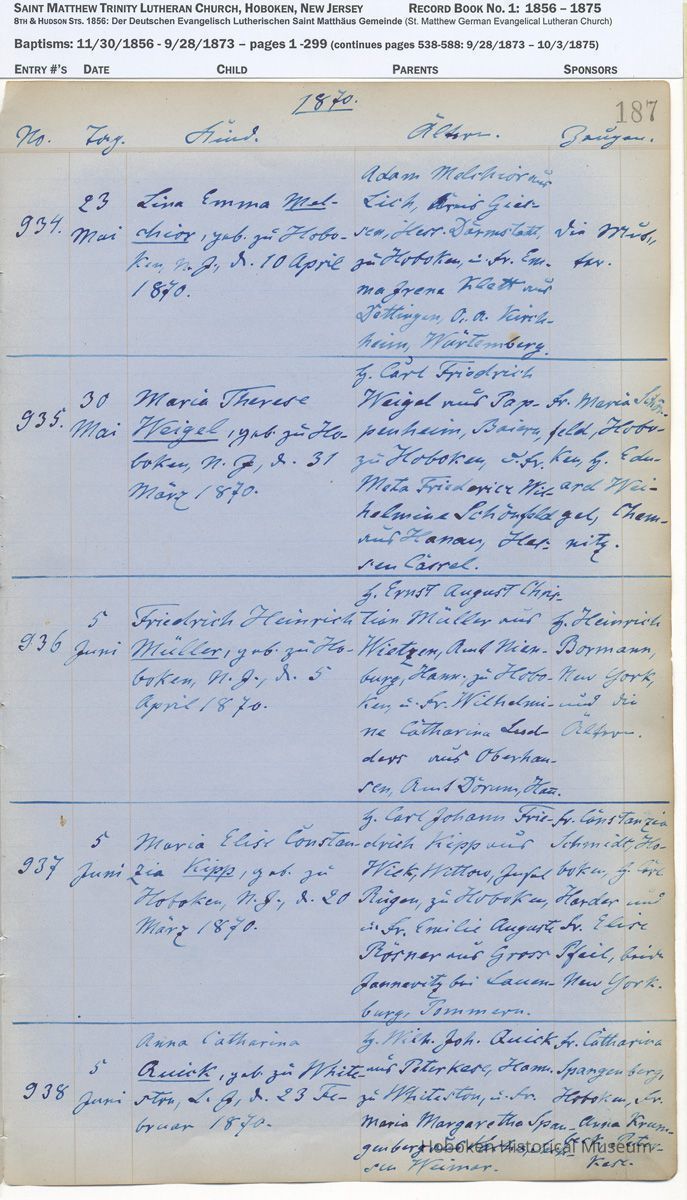 SAINT MATTHEW TRINITY LUTHERAN CHURCH, HOBOKEN, NEW JERSEY RECORD BOOK NO. 1: 1856 – 1875
8TH & HUDSON STS. 1856: Der Deutschen Evangelisch Lutherischen Saint Matthäus Gemeinde (St. Matthew German Evangelical Lutheran Church)
Baptisms: 11/30/1856 - 9/28/1873 – pages 1 -299 (continues pages 538-588: 9/28/1873 – 10/3/1875)
ENTRY #'S DATE CHILD PARENTS SPONSORS
1870.
187
No. Tag. Kind. Ältern. Zeugen.
934.
23
Mai
Lina Emma Mel-
chior, geb. zu Hobo-
ken, N. J., d. 10 April
1870.
Adam Melchior aus
Lich, Kreis Gies-
sen, Hess. Darmstadt,
zu Hoboken, u. Fr. Em-
ma Irena Klett aus
Dettingen, O. A. Kirch-
heim, Würtemberg.
Die Mut-
ter.
935.
30
Mai
Maria Therese
Weigel, geb. zu Ho-
boken, N. J., d. 31
März 1870.
H. Carl Friedrich
Weigel aus Pap-
penheim, Baiern,
zu Hoboken, u. Fr.
Meta Friederice Wil-
helmine Schönfeld
aus Hanau, Hes-
sen Cassel.
Fr. Maria Schön-
feld, Hobo-
ken, H. Edu-
ard Wei-
gel, Chem-
nitz.
936
5
Juni
Friedrich Heinrich
Müller, geb. zu Ho-
boken, N. J., d. 5
April 1870.
H. Ernst August Chris-
tian Müller aus
Wietzen, Amt Nien-
burg, Hann., zu Hobo-
ken, u. Fr. Wilhelmi-
ne Catharina Lüd-
ders aus Oberhau-
sen, Amt Dorum, Han.
H. Heinrich
Bormann,
New York,
und die
Ältern.
937
5
Juni
Maria Elise Constan-
zia Kipp, geb. zu
Hoboken, N. J., d. 20
März 1870.
H. Carl Johann Frie-
drich Kipp aus
Wiek, Wittow, Insel
Rügen, zu Hoboken,
u. Fr. Emilie Auguste
Rösner aus Gross
Jannewitz bei Lauen-
burg, Pommern.
Fr. Constanzia
Schmidt, Ho-
boken, H. Carl
Harder und
Fr. Elise
Pfeil, beide
New York.
938
5
Juni
Anna Catharina
Quick, geb. zu White-
ston, L. J., d. 23 Fe-
bruar 1870.
H. Wilh. Joh. Quick
aus Neterkese, Hann.
zu Whiteston, u. Fr.
Maria Margaretha Span-
genberg aus
sen Weimar.
Fr. Catharina
Spangenberg,
Hoboken, Fr.
Anna
Hoboken Historical Museum